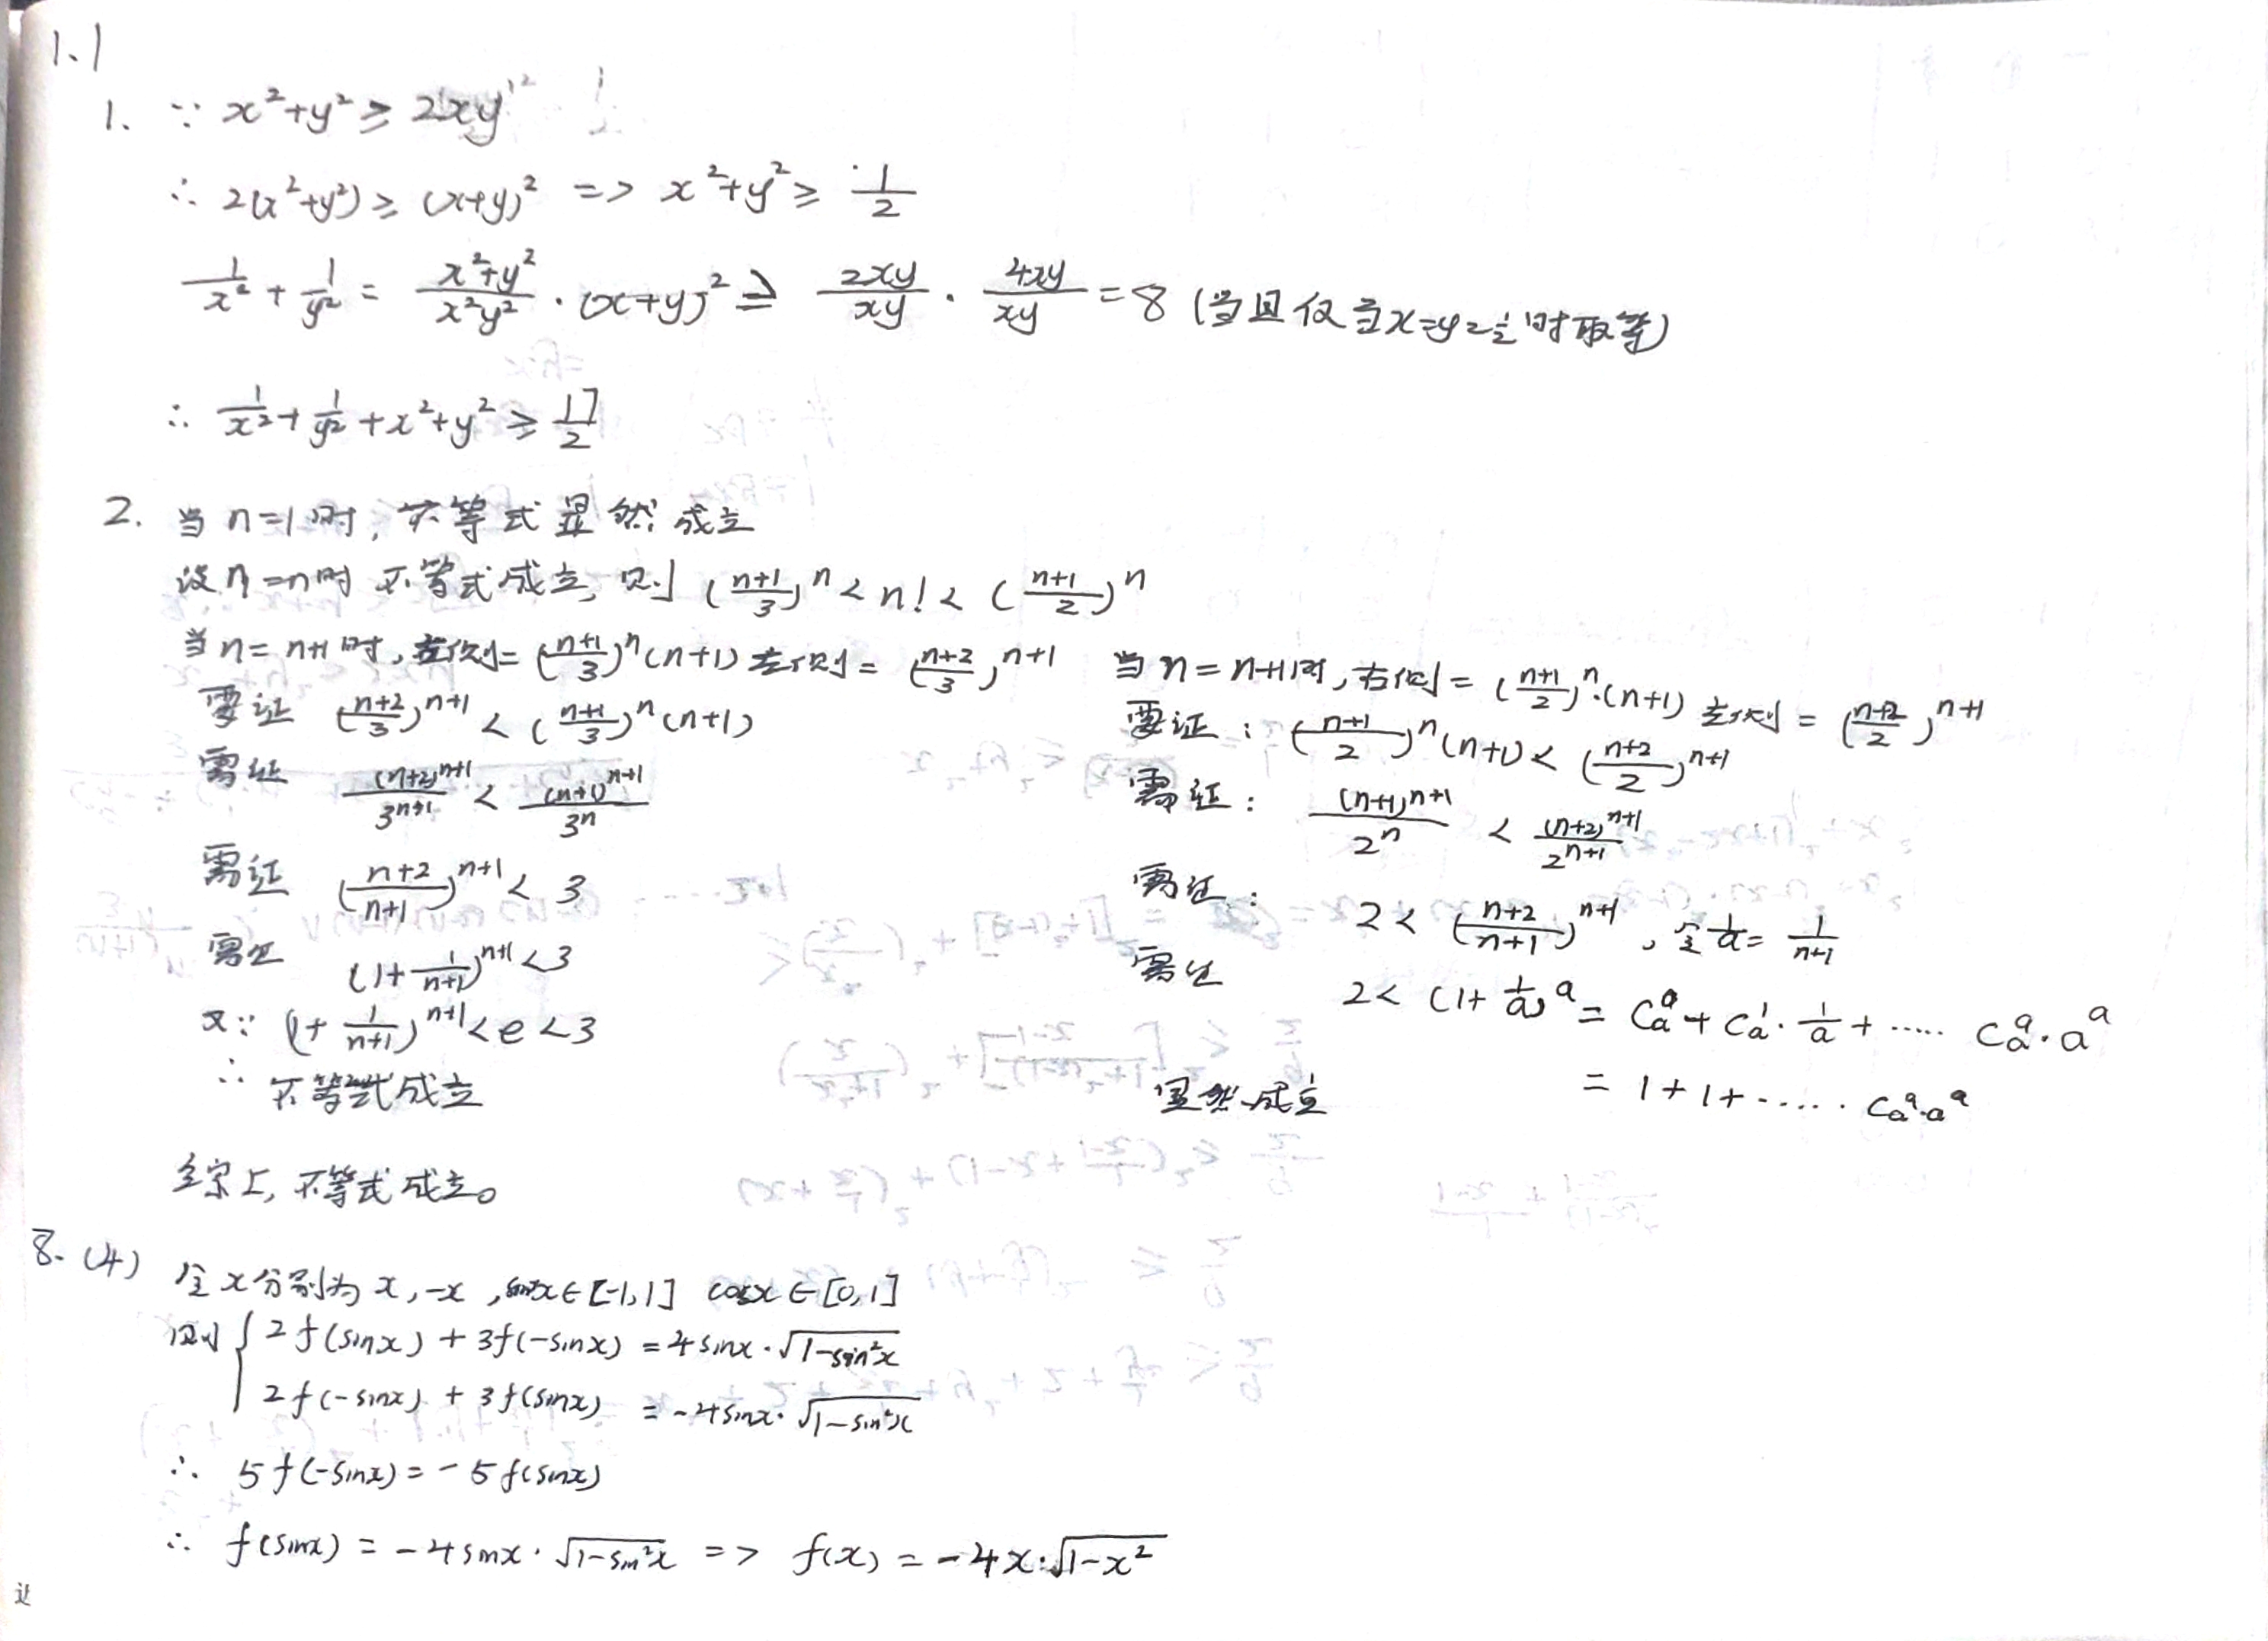 1.1
1. ∵ x²+y² ≥ 2xy
∴ 2(x²+y²) ≥ (x+y)² => x²+y² ≥ 1/2
1/x² + 1/y² = (x²+y²)/(x²y²) · (x+y)² ≥ 2xy/xy · 4xy/xy = 8 (当且仅当x=y=1/2时取等)
∴ 1/x² + 1/y² + x²+y² ≥ 17/2
2. 当n=1时, 不等式显然成立
设n=n时 不等式成立, 则 ((n+1)/3)^n < n! < ((n+1)/2)^n
当n=n+1时, 右侧= ((n+1)/3)^n (n+1) 左侧= ((n+2)/3)^(n+1)
要证 ((n+2)/3)^(n+1) < ((n+1)/3)^n (n+1)
需证 (n+2)^(n+1)/3^(n+1) < (n+1)^(n+1)/3^n
需证 ((n+2)/(n+1))^(n+1) < 3
需证 (1+1/(n+1))^(n+1) < 3
又∵ (1+1/(n+1))^(n+1) < e < 3
∴ 不等式成立
当n=n+1时, 右侧= ((n+1)/2)^n·(n+1) 左侧= ((n+2)/2)^(n+1)
要证: ((n+1)/2)^n (n+1) < ((n+2)/2)^(n+1)
需证: (n+1)^(n+1)/2^n < (n+2)^(n+1)/2^(n+1)
需证: 2 < ((n+2)/(n+1))^(n+1), 令1/a = 1/(n+1)
需证 2 < (1+1/a)^a = C_a^0 + C_a^1 · 1/a + ····· C_a^a · a^a
= 1+1+····· C_a^a·a^a
显然成立
综上, 不等式成立。
8. (4) 令x分别为x, -x, sinx∈[-1,1] cosx∈[0,1]
则 { 2f(sinx) + 3f(-sinx) = 4sinx·√(1-sin²x)
2f(-sinx) + 3f(sinx) = -4sinx·√(1-sin²x)
∴ 5f(-sinx) = -5f(sinx)
∴ f(sinx) = -4sinx·√(1-sin²x) => f(x) = -4x·√(1-x²)